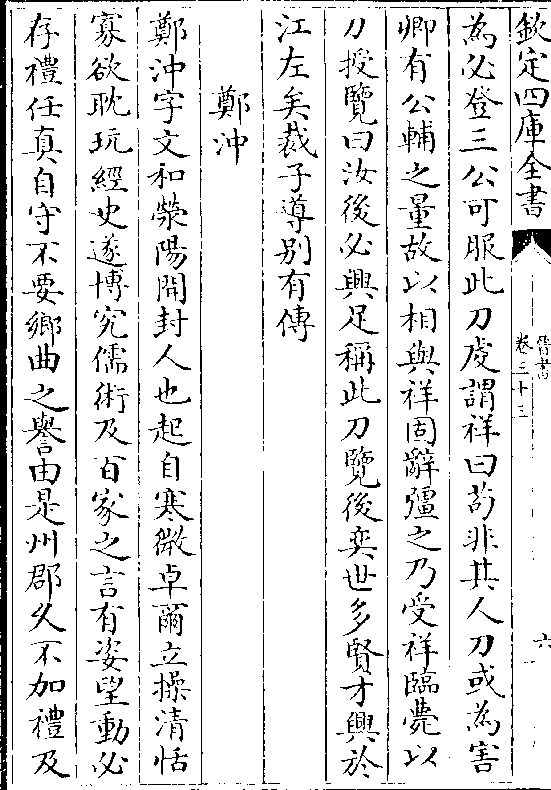 欽定四庫全書
晉書
卷三十三
六
為必登三公可服此刀䖍謂祥曰茍非其人刀或為害
卿有公輔之量故以相與祥固辭彊之乃受祥臨薨以
刀授覽曰汝後必興足稱此刀覽後奕世多賢才興於
江左矣裁子導别有傳
鄭沖
鄭沖字文和滎陽開封人也起自寒微卓爾立操清恬
寡欲耽玩經史遂博究儒術及百家之言有姿望動必
存禮任真自守不要鄉曲之譽由是州郡久不加禮及